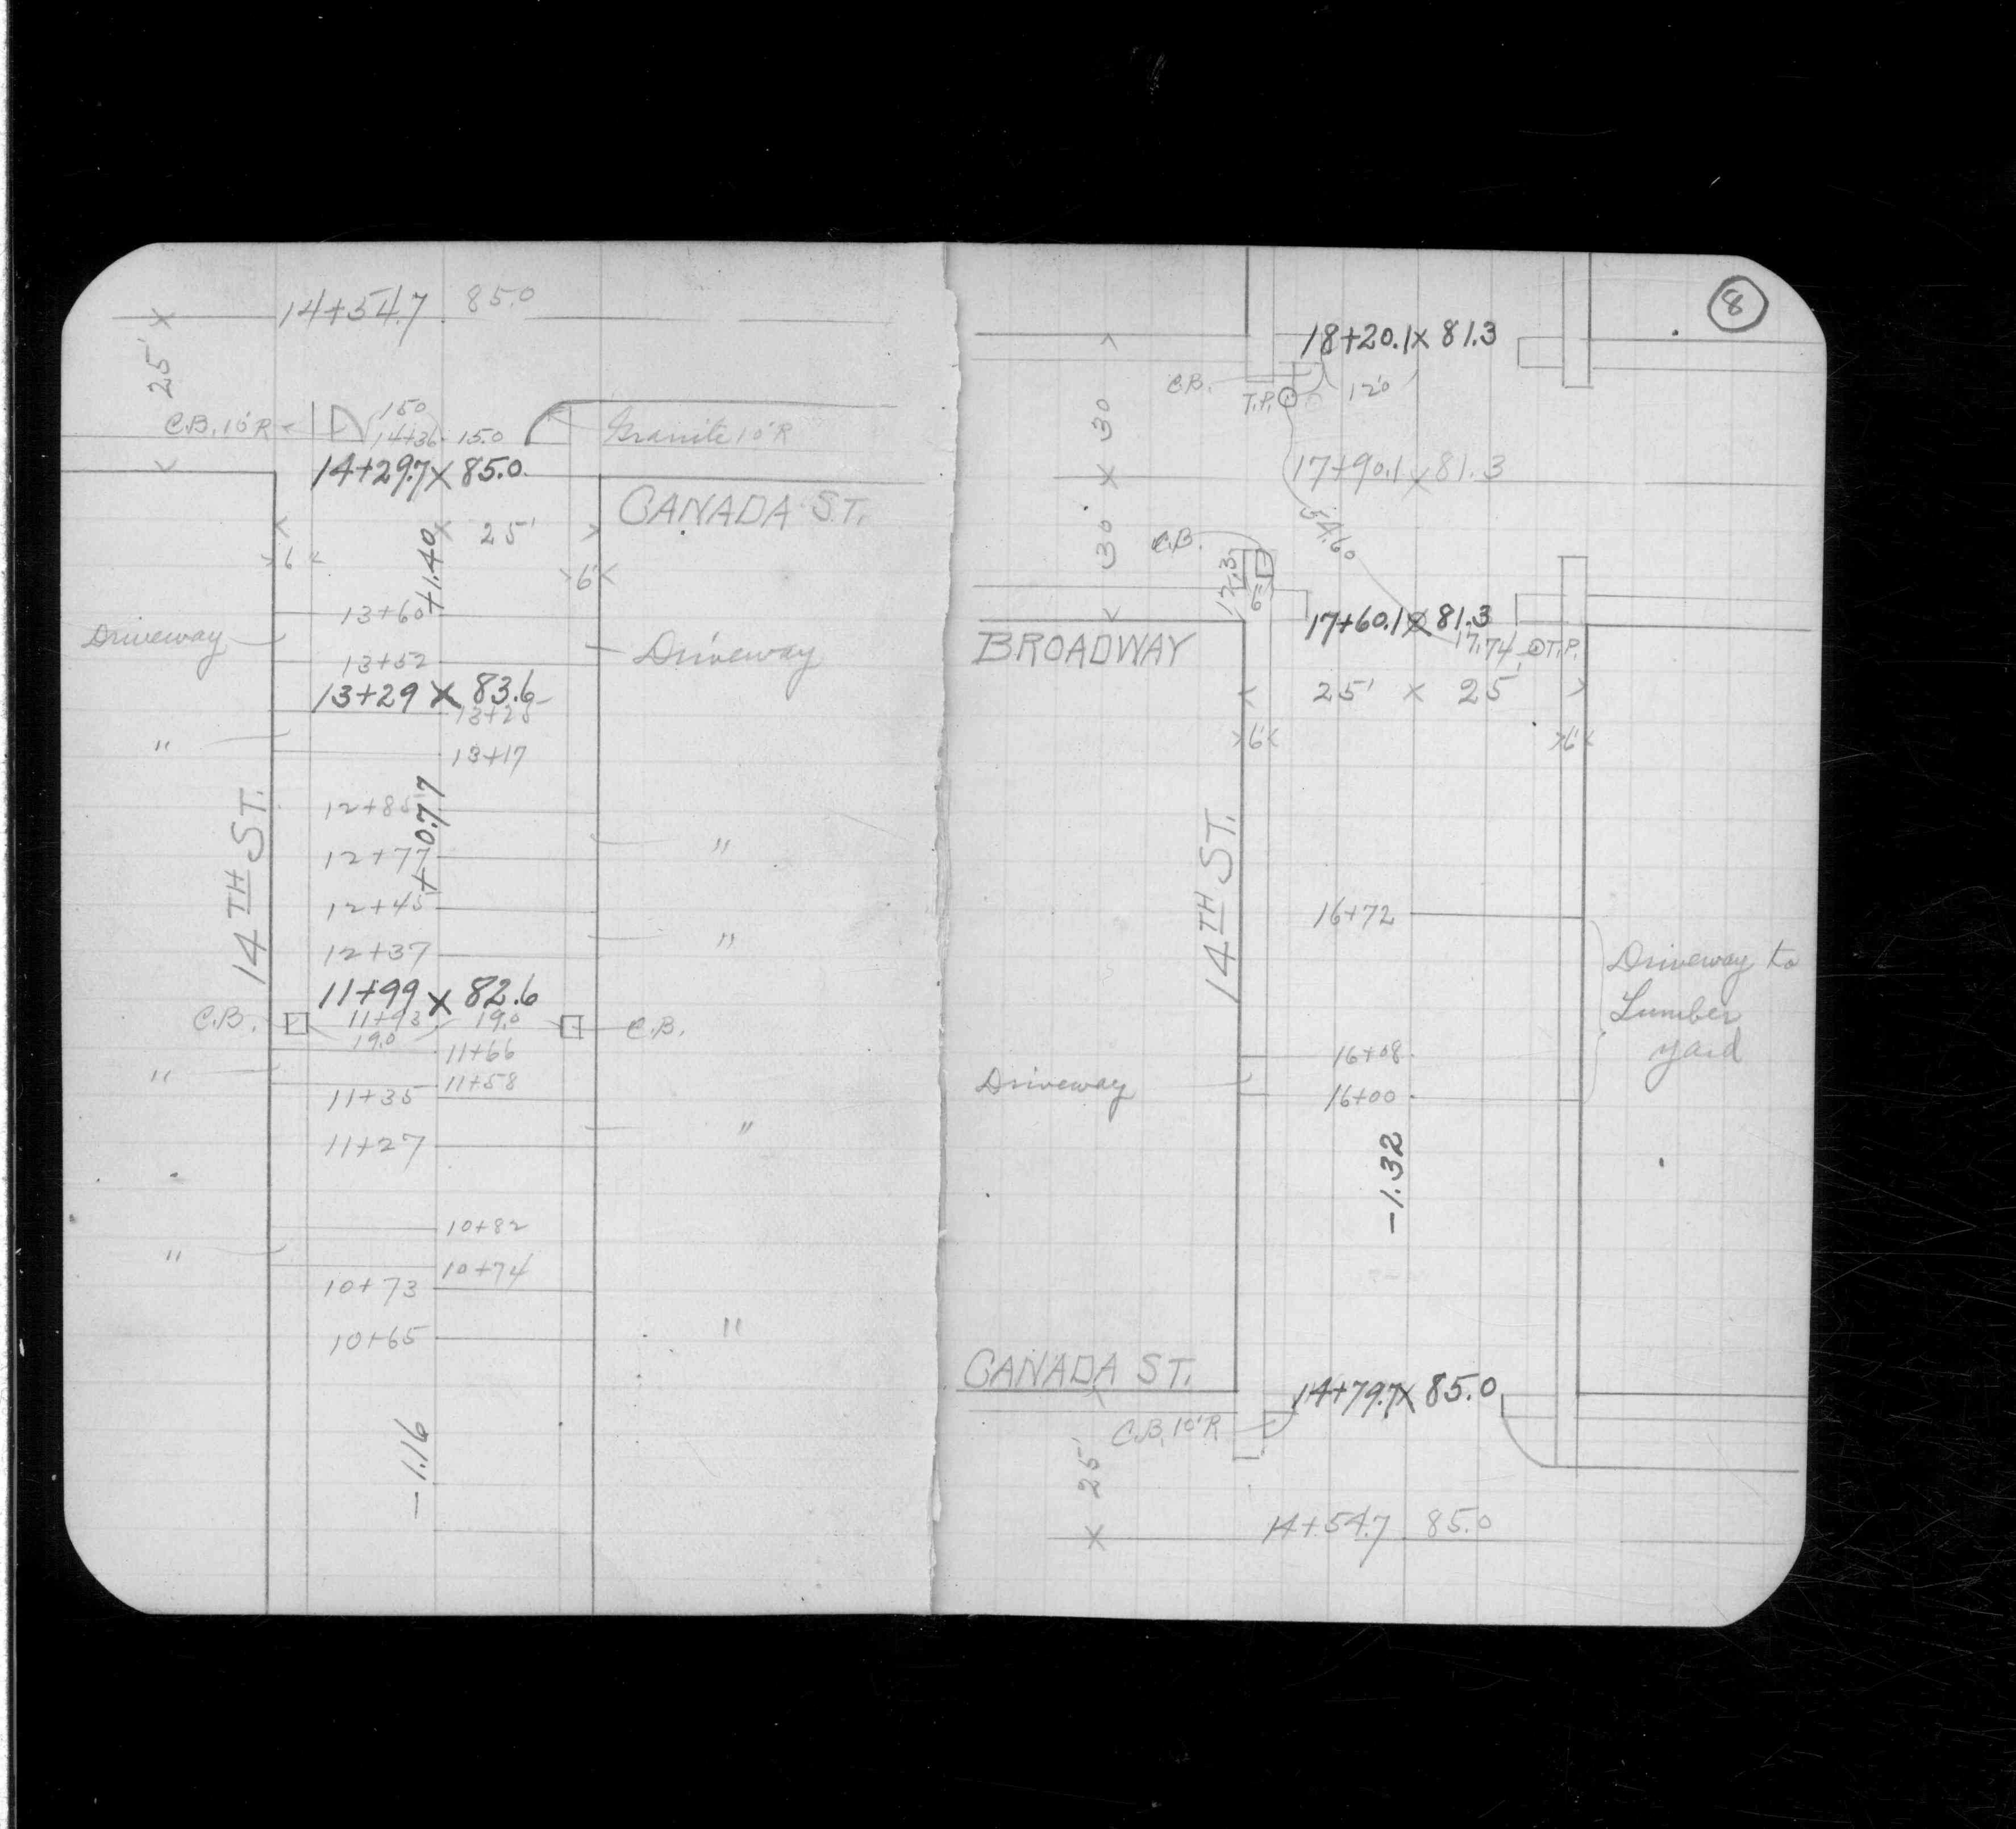 14+54.7 85.0
25'
C.B. 10'R
15.0
14+36 15.0
Granite 10'R
14+29.7 x 85.0
CANADA ST.
x 25'
6'
6'
+1.40
13+60
Driveway
Driveway
13+52
13+29 x 83.6
13+25
"
13+17
12+85
+0.77
12+77
"
14TH ST.
12+45
12+37
"
11+99 x 82.6
C.B.
11+93 19.0
C.B.
19.0
11+66
"
11+58
11+35
"
11+27
10+82
"
10+74
10+73
10+65
"
-1.16
8
18+20.1 x 81.3
C.B.
T.P.
12.0
30' x 30
17+90.1 x 81.3
C.B.
51.60
17.3
17+60.1 x 81.3
BROADWAY
17.74 T.P.
25' x 25'
6'
6'
14TH ST.
16+72
Driveway to
Lumber
yard
16+08
Driveway
16+00
-1.32
CANADA ST.
14+79.7 x 85.0
C.B. 10'R
x 25'
14+54.7 85.0